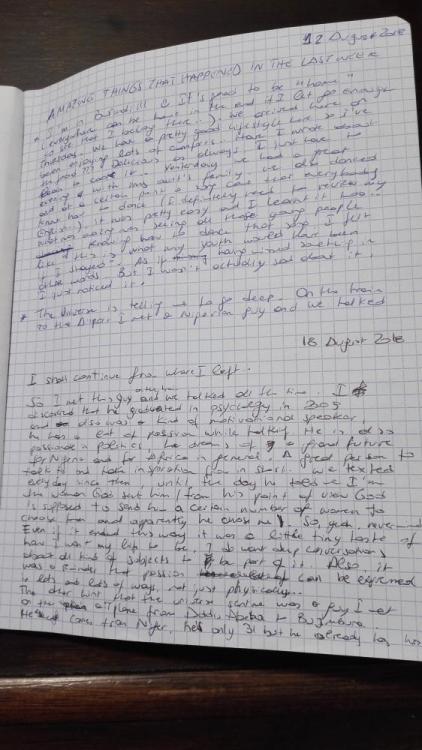 12 August 2018
AMAZING THINGS THAT HAPPENED IN THE LAST WEEK
* I'm in Burundi!!! It's good to be "home"
(everywhere can be home in the end if I let go enough
to feel that I belong there...). We arrived here on
Tuesday. We have a pretty good lifestyle here so I've
been enjoying lots of comforts. Have I wrote about
the food??? Delicious as always! I just have to
Yesterday we had a great
evening with my aunt's family, we also danced
and at a certain point a song came that everybody
knew how to dance (I definitely need to review my
English). It was pretty easy and I learnt it too...
what was was seeing all those young people
knowing how to dance that song. I felt
like "this is what my youth would have been
if I stayed". As if having missed something in
other words. But I wasn't actually sad about it,
I just noticed it.
* The Universe is telling me to go deep. On the train
to the airport I met a Nigerian guy and we talked
18 August 2018
I shall continue from where I left.
So I met this guy and we talked all the time. I
discovered that he graduated in psychology in 2009
and also was a kind of motivational speaker.
He has a lot of passion while talking. He is also
passionate in politics he dreams of a grand future
for Nigeria and for Africa in general. A great person to
talk to and take inspiration from in short. We texted
everyday since then, until the day he tells me I'm
the woman God sent him (from his point of view God
is supposed to send him a certain number of women to
choose from and apparently he chose me). So, yeah, nevermind.
Even if it ended this way it was a little tiny taste of
how I want my life to be, I do want deep conversations
about all kind of subjects to be part of it. Also, it
was a reminder that passion can be expressed
in lots and lots of ways, not just physically...
The other hint that the universe sent me was a guy I met
on the plane from Addis Abeba to Bujumbura.
He comes from Niger, he's only 31 but he already has